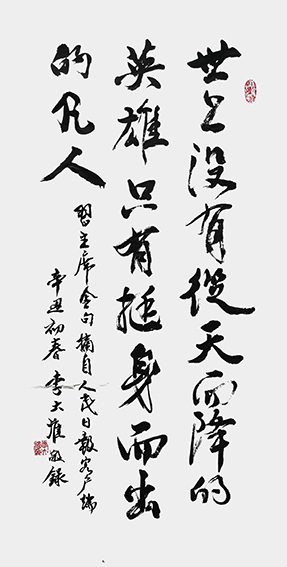 世上没有從天而降的
英雄只有挺身而出
的凡人
習主席金句摘自人民日報客户端
辛丑初春李大准敬録